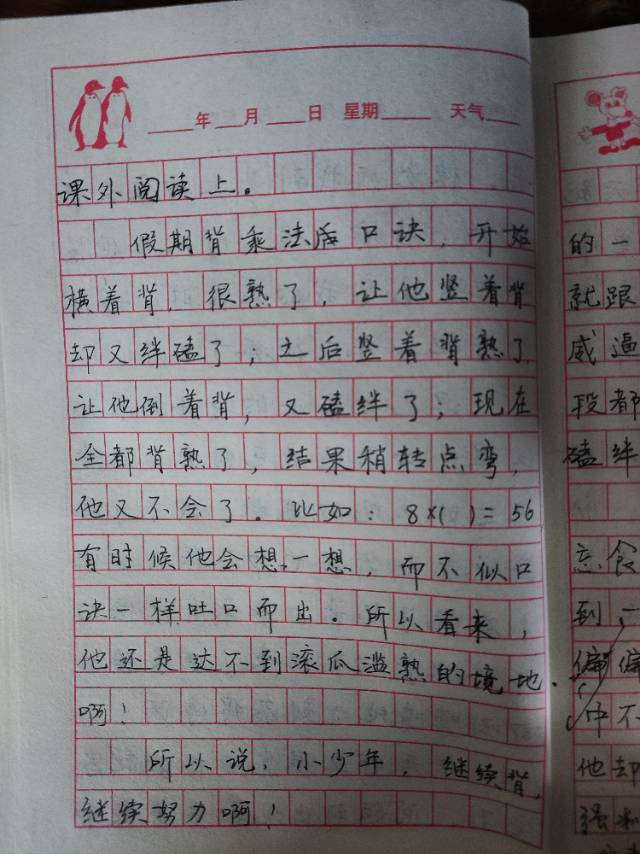 ____年___月____日 星期______ 天气____
课外阅读上。
假期背乘法后口诀，开始
横着背，很熟了，让他竖着背
却又绊磕了；之后竖着背熟了
让他倒着背，又磕绊了；现在
全都背熟了，结果稍转点弯，
他又不会了．比如：8×( )=56
有时候他会想一想，而不似口
诀一样吐口而出．所以看来，
他还是达不到滚瓜滥熟的境地．
啊！
所以说，小少年，继续背，
继续努力啊！
的一
就跟
威逼
段都
磕绊
忘食
到，
偏偏
中不
他却